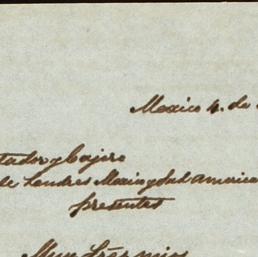 Mexico 4. de
tador y Cajero
de Londres Mexico y Sud America
presentes
Muy Sres mios